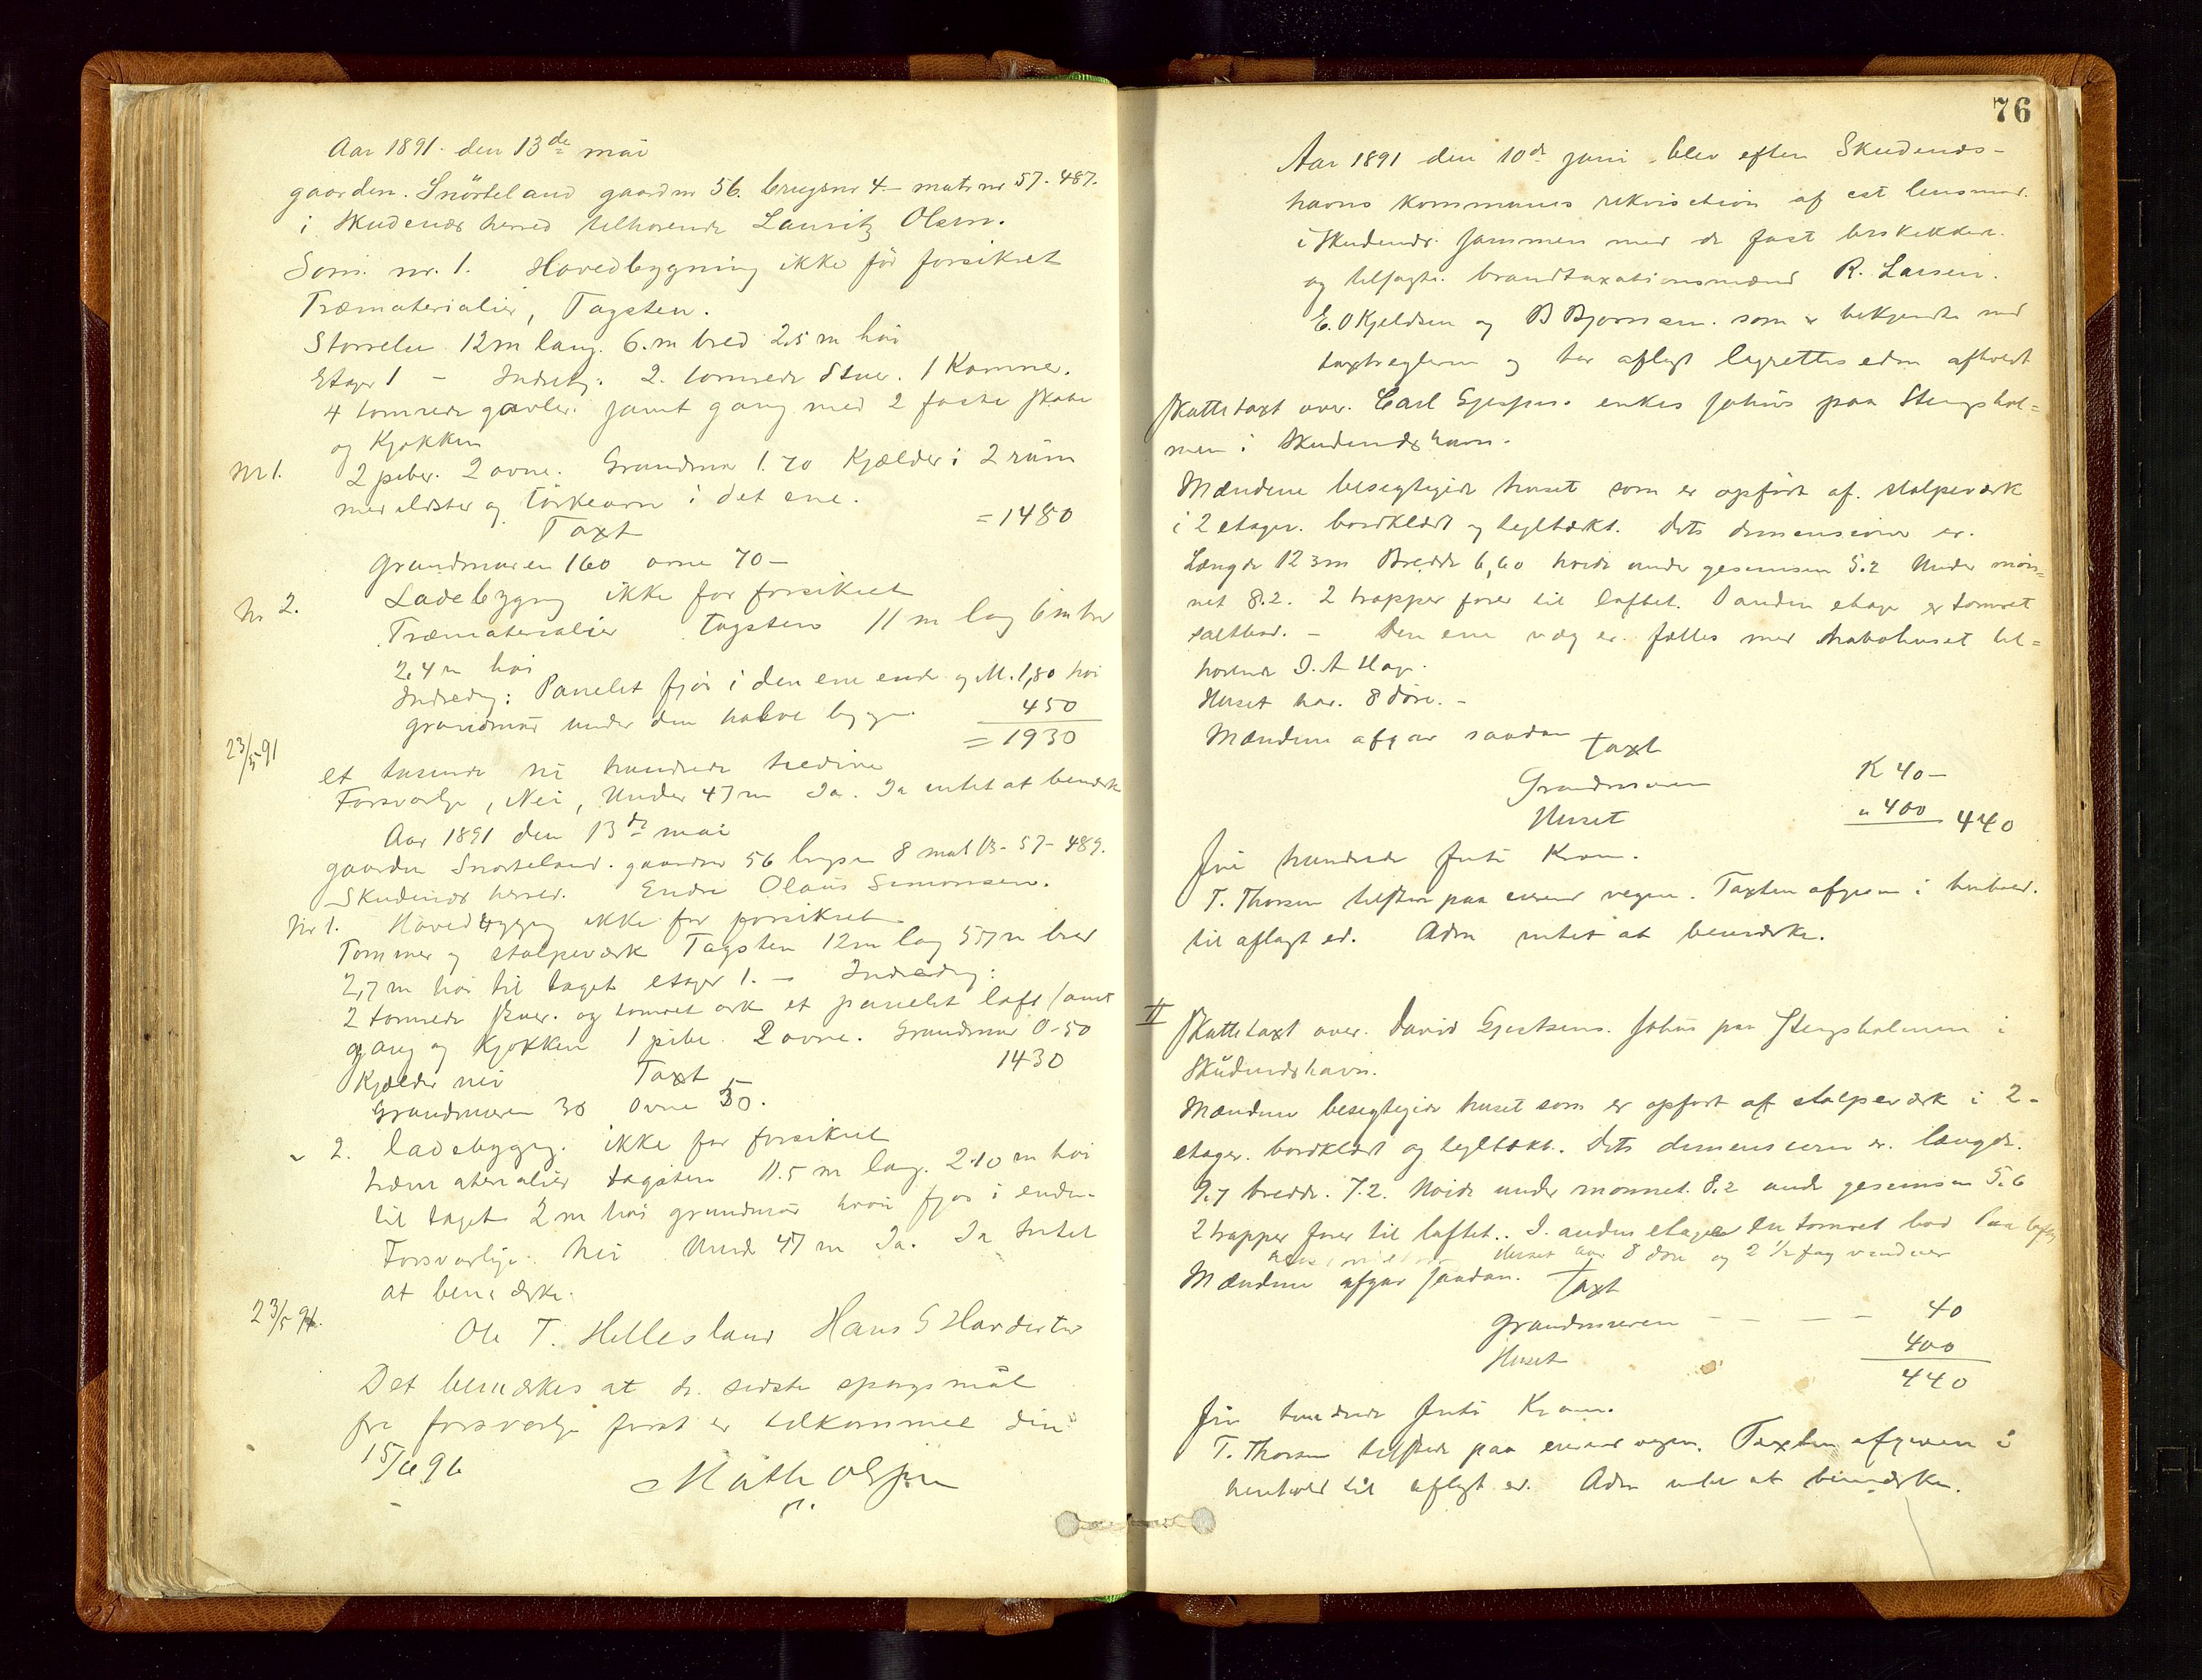 Aar 1891. den 13de mai
gaarden. Snörteland gaardnr 56. brugsnr 4 – matr nr 57. 487.
i Skudenæs herred tilhorende Lauritz Olsen.
Som nr. 1. Hovedbygning ikke för forsikret
Træmaterialier, Tagsten.
Storrelse 12 m lang. 6. m bred 2,5 m höi
Etager 1 – Indretg: 2. tomrede Stuer. 1 Kammer.
4 tomrede gavler. samt gang med 2 faste skabe
og Kjøkken
Nr 1. 2 piber. 2 ovne. Grundmur 1.70 Kjælder i 2 rum
med ildster og törkeovn i det ene.
Taxt = 1480
Grundmuren 160 ovne 70 –
Nr 2. Ladebygng ikke for forsikret
Træmaterialier tagsten 11 m lag 6 m bre
2,4 m höi
Indredg: Panelet fjös i den ene ende og M. 1,80 höi
grundmur under den halve bygn. 450
23/5 91 = 1930
et tusende ni hundrede tredive
Forsvarlge, Nei, Under 47 m Ja. Ja intet at bemærke
Aar 1891 den 13de mai
gaarden Snorteland. gaardnr 56 brugsnr 8 mat 13 - 57 - 489.
Skudenæs herred. Endre Olaus Simonsen.
Nr 1. Hovedbyggng ikke for forsikret
Tommer og stolpeværk Tagsten 12 m lag 5,57 m bred
2,7 m höi til taget etager 1. – Indredg:
2 tomrede stuer. og tomret ark et panelet loft samt
gang og Kjøkken 1 pibe. 2 ovne. Grundmur 0-50
Kjælder nei Taxt 1430
Grundmuren 30 Ovne 50.
" 2. ladebyggng. ikke for forsikret
træmaterialier tagsten 11.5 m lag. 2.10 m höi
til taget 2 m höi grundmur hvori fjös i enden
Forsvarlige. Nei Under 47 m Ja. Ja Intet
at bemærke.
23/5 91.
Ole T. Hellesland Hans G Hardertun
Det bemærkes at de sidste spørgsmål
fra forsvarlge først er tilkommet den
15/ 96
Math Olsen
Aar 1891 den 10de juni blev efter Skudenæs-
havns Kommunes rekvisition af cst lensmand.
i Skudenæs. sammen med de fast beskikkede
og tilsagte. brandtaxationsmænd R. Larsen.
E. O Kjeldsen og B Bjornsen. som er bekjendte med
taxtreglerne og har aflagt lagrettes eden afholdt
skattetaxt over. Carl enkes söhus paa Stengshol=
men i Skudenæshavn.
Mændene besigtigede huset som er opfört af. stolpeværk
i 2 etager. bordklædt og tegltækt. Dets dimensioner er.
Længde 12 3 m Bredde 6,60 hoide under gesimsen 5.2 Under møn=
net 8.2. 2 trapper förer til loftet. I anden etage er tomret
saltbod. – Den ene væg er. fælles med nabohuset til=
horende J. A Hage.
Huset har. 8 döre. –
Mændene afgav saadan taxt
Grundmuren K 40 –
Huset " 400 440
fire hundrede forti Kroner.
T. Thorsen tilstede paa eierens vegne. Taxten afgiven i henhold.
til aflagt ed. Aden intet at bemærke.
II Skattetaxt over. David Gjertsens. söhus paa Stengsholmen i
Skudenæshavn.
Mændene besigtigede huset som er opfört af stolpeværk i 2-
etager. bordklædt og tegltækt. Dets dimensioner er. længde.
9.7 bredde. 7.2. Höide under monnet. 8.2 under gesimsen 5.6
2 trapper förer til loftet.. I. anden etage en tomret bod Paa loftet
Huset har 8 döre og 2 ½ fag vinduer
Mændene afgav saadan. Taxt
grundmuren – – – – 40
Huset 400
440
fire hundrede forti Kroner.
T. Thorsen tilstede paa eierens vegne. Taxten afgiven i
henhold til aflagt ed. Aden intet at bemærke.
76